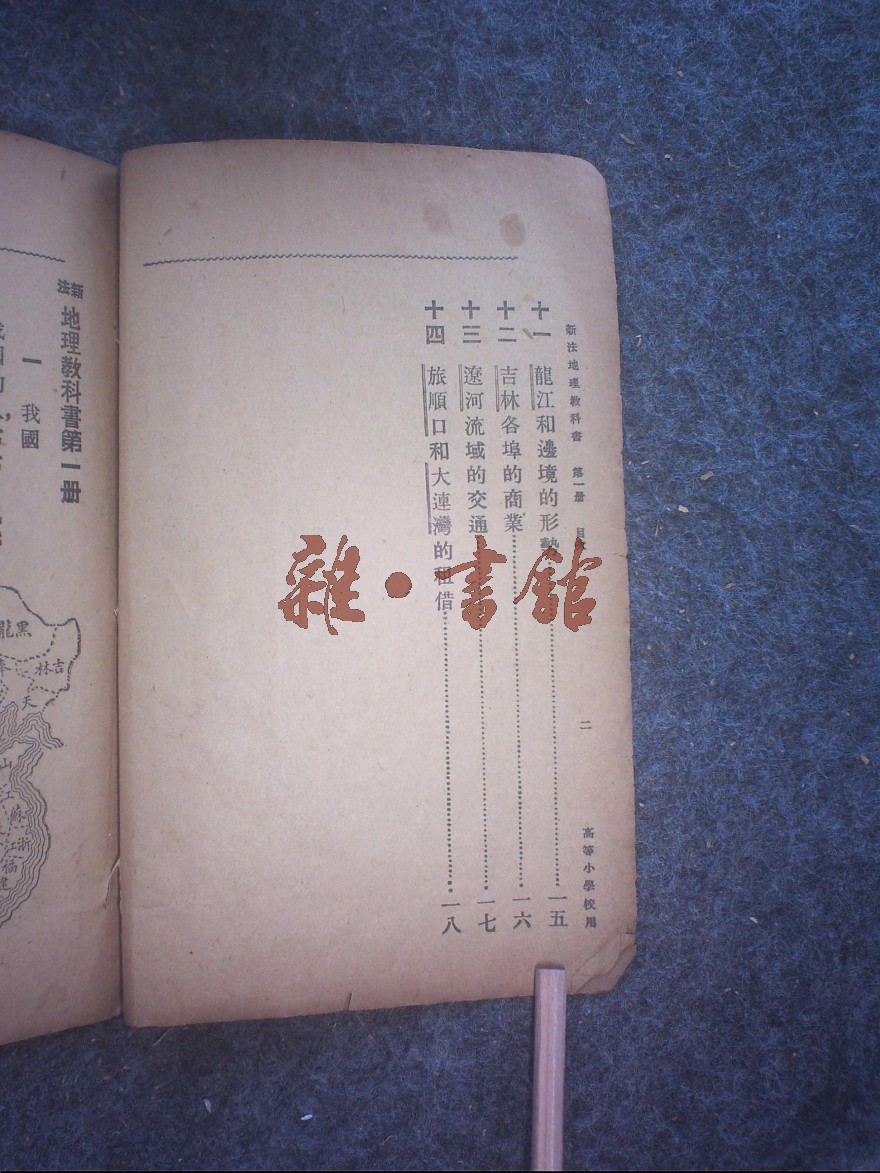 新法地理教科書 第一册 目 二 高等小學校用
十一 龍江和邊境的形勢……一五
十二 吉林各埠的商業……一六
十三 遼河流域的交通……一七
十四 旅順口和大連灣的租借……一八
新法 地理教科書第一册
一 我國
我國的
黑龍
吉林
奉
天
山
江蘇
浙江
福建
雜·書館